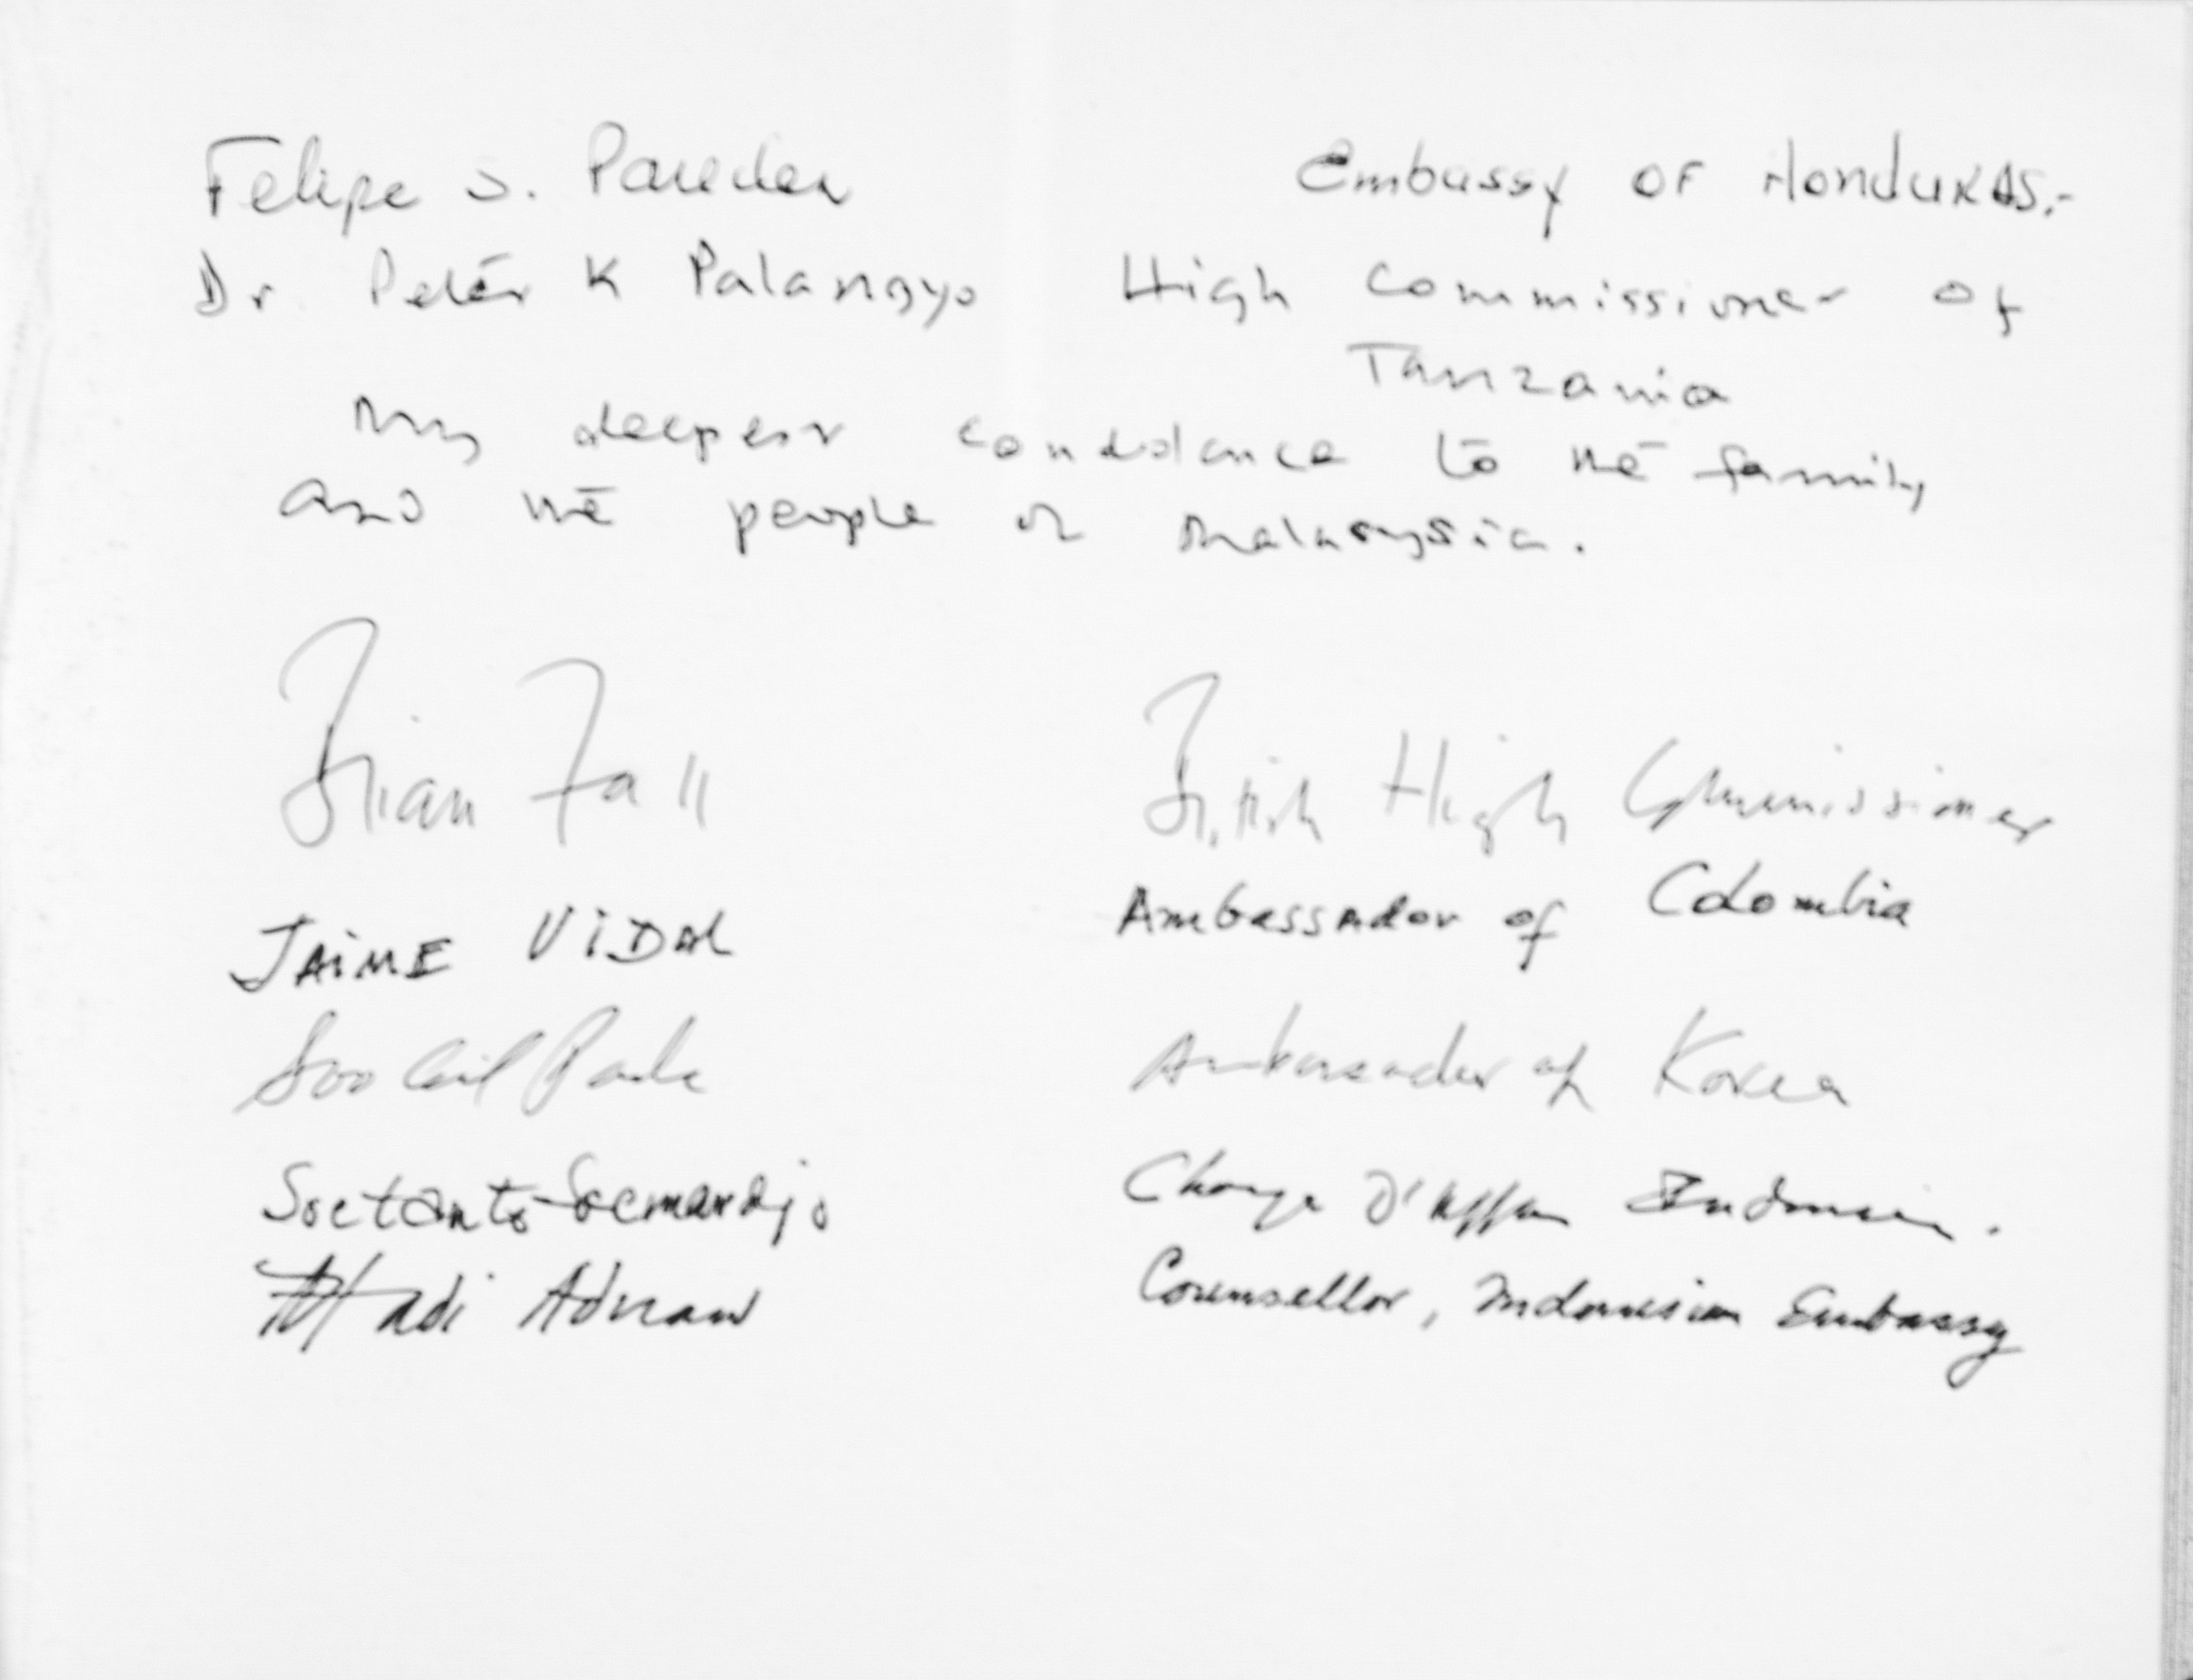 Felipe S. Paredes Embassy of Honduras.-
Dr. Peter K Palangyo High Commissioner of
Tanzania
My deepest condolance to the family
and the people of Malaysia.
Brian Fall British High Commissioner
JAiME ViDAL Ambassador of Colombia
Soo Gil Park Ambassador of Korea
Soetanto Soemardjo Charge D'Affair Indonesia.
Hadi Adnan Counsellor, Indonesian Embassy